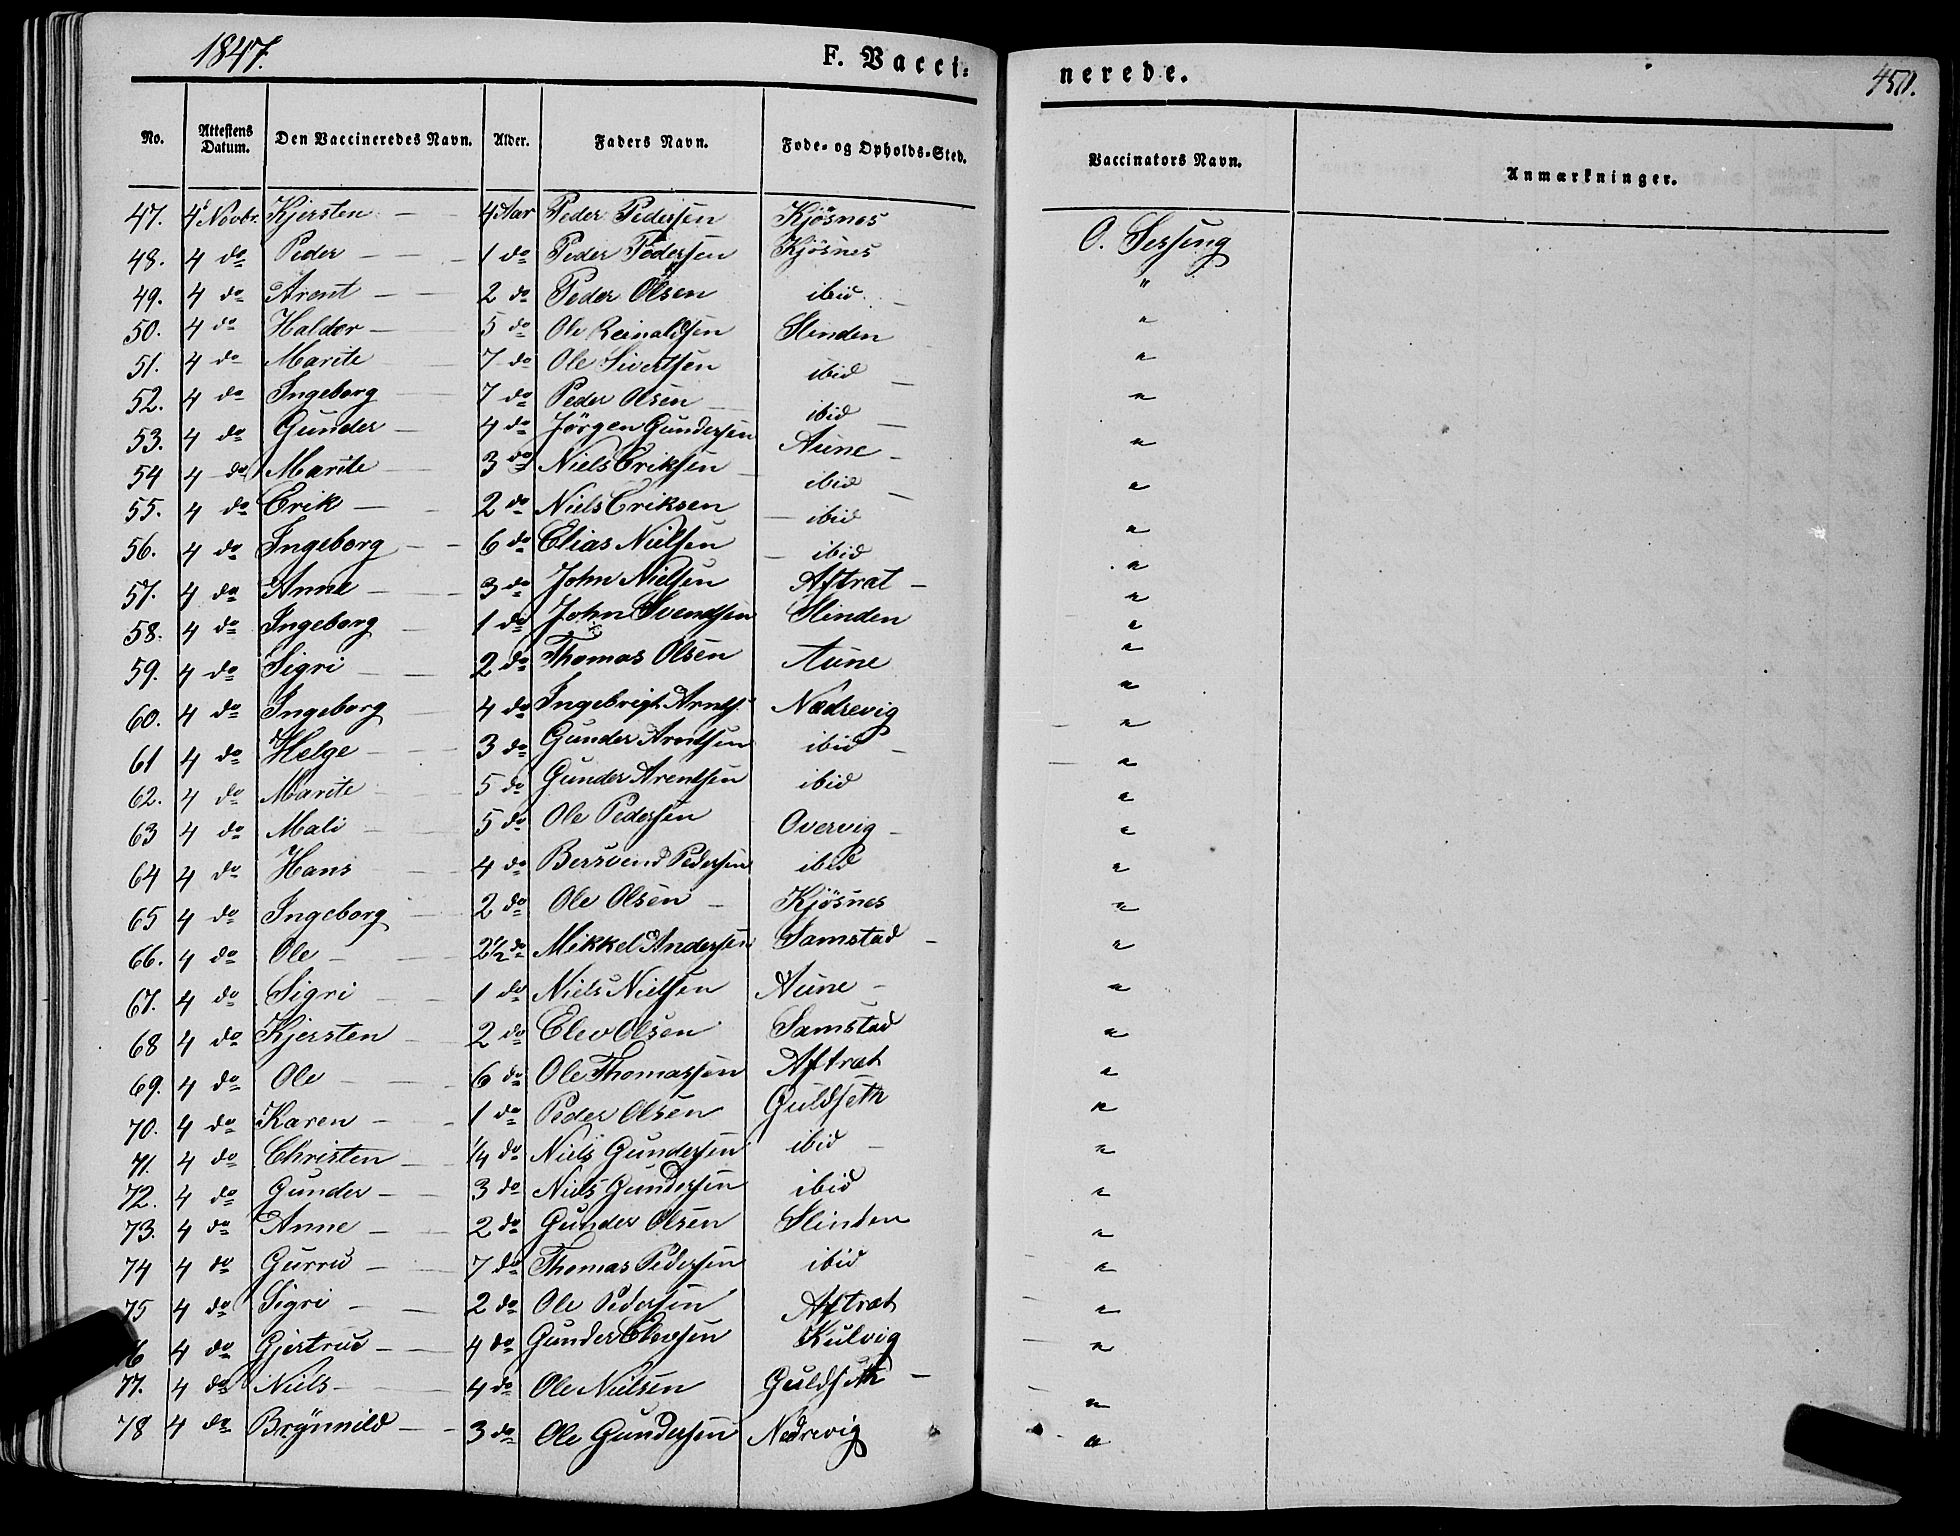 1847.
F. Vacci-
nerede.
450.
No. Attestens Datum. Den Vaccineredes Navn. Alder. Faders Navn. Føde- og Opholds-Sted. Vaccinators Navn. Anmærkninger.
47. 4 Novbr. Kjersten - 4 Aar Peder Pedersen Kjösnes O.
48. 4 do Peder - - 1 do Peder Pedersen Kjösnes "
49. 4 do Arent - - 2 do Peder Olsen ibid. - "
50. 4 do Haldor - 5 do Ole Reinaldsen Slinden "
51. 4 do Marite 7 do Ole Sivertsen ibid - "
52. 4 do Ingeborg - 7 do Peder Olsen ibid - "
53. 4 do Gunder - 4 do Jörgen Gundersen Aune - "
54 4 do Marite - 3 do Niels Eriksen - ibid - "
55. 4 do Erik - - 2 do Niels Eriksen - ibid "
56. 4 do Ingeborg - - 6 do Elias Nielsen - ibid "
57. 4 do Anne - - 3 do John Nielsen Aftrat - "
58. 4 do Ingeborg - 1 do John Svendsen Slinden "
59. 4 do Sigri - - 2 do Thomas Olsen Aune "
60. 4 do Ingeborg - 4 do Ingebrigt Arnts. Nedrevig "
61 4 do Helge - - 3 do Gunder Arntsen ibid - "
62. 4 do Marite - 5 do Gunder Arentsen ibid "
63 4 do Mali - - 5 do Ole Pedersen Overvig - "
64 4 do Hans - - 4 do Bersvend Pedersen ibid "
65 4 do Ingeborg - 2 do Ole Olsen - Kjösnes "
66. 4 do Ole - - 2½ do Mikkel Andersen Samstad - "
67. 4 do Sigri - - 1 do Niels Nielsen Aune - "
68 4 do Kjersten - 2 do Elev Olsen Samstad "
69. 4 do Ole - - 6 do Ole Thomassen Aftrat "
70. 4 do Karen - - 1 do Peder Olsen Guldseth "
71. 4 do Christen - ¼ do Niels Gundersen ibid - "
72. 4 do Gunder - - 3 do Niels Gundersen ibid "
73. 4 do Anne - - 2 do Gunder Olsen Slinden "
74 4 do Gurru - - 7 do Thomas Pedersen ibid "
75 4 do Sigri - - 2 do Ole Pedersen Aftrat "
76 4 do Gjertrud - - 4 do Gunder Elevsen Kulvig "
77. 4 do Niels - - 4 do Ole Nielsen Guldseth - "
78 4 do Brynnild - - 3 do Ole Gundersen Nedrevig "